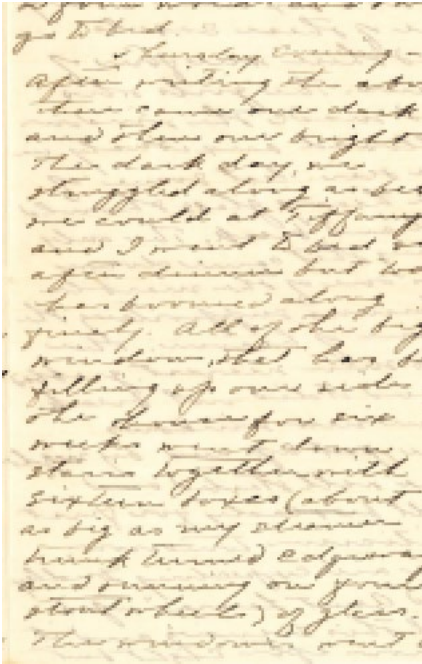 go to bed.
Thursday Evening
After writing the above
there came one dark
and then one bright
The dark day, we
struggled along as bes
we could at Tiffany
and I went to bed
after dinner but to
has boomed along
finely. All of the big
window that has b
filling up one side
the house for six
weeks went down
stairs together with
sixteen boxes (about
as big as my steamer
trunk turned edgewa
and running on
stout wheels) of glass.
The windows went